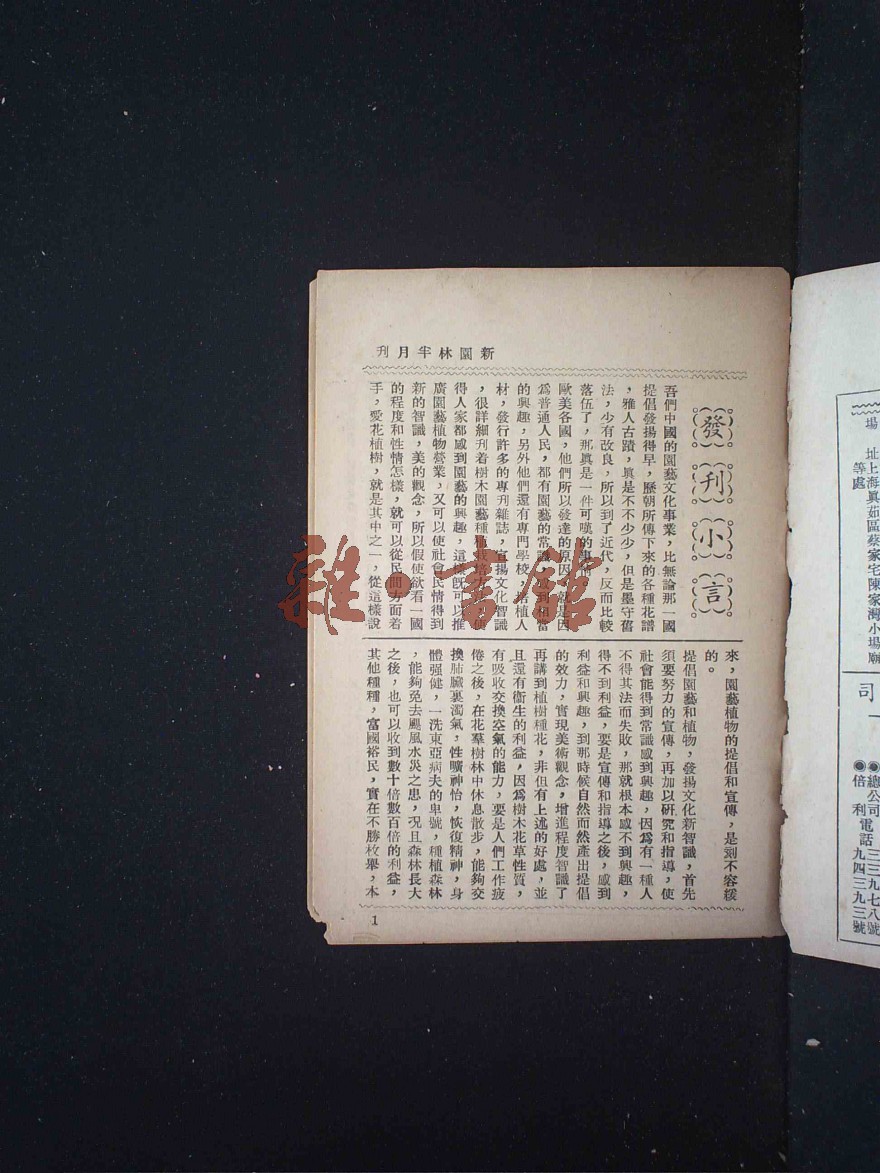 新園林半月刊
發刊小言
吾們中國的園藝文化事業，比無論那一國
提倡發揚得早，歷朝所傳下來的各種花譜
，雅人古蹟，眞是不不少少，但是墨守舊
法，少有改良，所以到了近代，反而比較
落伍了，那眞是一件可嘆的事
歐美各國，他們所以發達的原因，就是因
為普通人民，都有園藝的常識，感到相當
的興趣，另外他們還有專門學校，培植人
材，發行許多的專刊雜誌，宣揚文化智識
，很詳細刊着樹木園藝種植栽培方，使
得人家都感到園藝的興趣，這樣旣可以推
廣園藝植物營業，又可以使社會民情得到
新的智識，美的觀念，所以假使欲看一國
的程度和性情怎樣，就可以從民間方面着
手，愛花植樹，就是其中之一，從這樣說
來，園藝植物的提倡和宣傳，是刻不容緩
的。
提倡園藝和植物，發揚文化新智識，首先
須要努力的宣傳，再加以研究和指導，使
社會能得到常識感到興趣，因為有一種人
不得其法而失敗，那就根本感不到興趣，
得不到利益，要是宣傳和指導之後，感到
利益和興趣，到那時候自然而然產出提倡
的效力，實現美術觀念，增進程度智識了
再講到植樹種花，非但有上述的好處，並
且還有衞生的利益，因為樹木花草性質，
有吸收交換空氣的能力，要是人們工作疲
倦之後，在花羣樹林中休息散步，能夠交
換肺臟裏濁氣，性曠神怡，恢復精神，身
體强健，一洗東亞病夫的臭號，種植森林
，能夠免去颶風水災之患，況且森林長大
之後，也可以收到數十倍數百倍的利益，
其他種種，富國裕民，實在不勝枚舉，本
1
場
址上海眞茹區蔡家宅陳家灣小場廟
等處
司
●總公司電話三三九七八號
●倍利電話九四三九三號
雜·書館